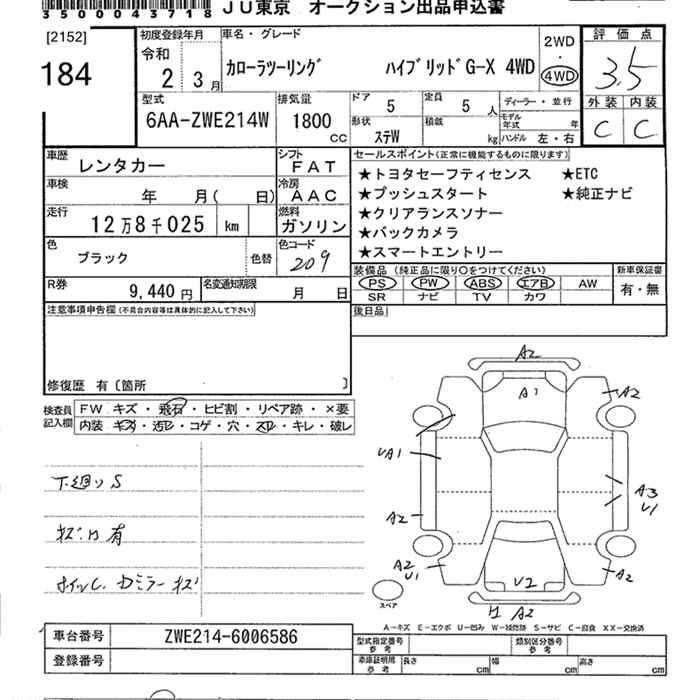 3500043718 JU東京 オークション出品申込書
[2152]
184
初度登録年月
令和
2 3月
車名・グレード
カローラツーリング ハイブリッドG-X 4WD
2WD
・
4WD
評価点
3.5
外装 内装
C C
型式
6AA-ZWE214W
排気量
1800
cc
ドア
5
定員
5 人
形状
ステW
積載
kg
ディーラー・並行
モデル年式 年
ハンドル 左・右
車歴
レンタカー
シフト
FAT
車検
年 月( 日)
冷房
AAC
走行
12万8千025 km
燃料
ガソリン
色
ブラック
色替
色コード
209
R券
9,440円
名変通知期限
月 日
セールスポイント(正常に機能するものに限ります)
★トヨタセーフティセンス ★ETC
★プッシュスタート ★純正ナビ
★クリアランスソナー
★バックカメラ
★スマートエントリー
装備品 (純正品に限り○をつけてください)
PS PW ABS エアB AW
SR ナビ TV カワ
新車保証書
有・無
後日品
注意事項申告欄(不具合内容等は具体的に記入して下さい)
修復歴 有〔箇所 〕
検査員
記入欄
FW キズ・飛石・ヒビ割・リペア跡・×要
内装 キズ・汚れ・コゲ・穴・スレ・キレ・破レ
下廻りS
キズ凹有
ホイルC. 力ミラーキズ
A2
A1
A2
UA1
A2
A3
U1
A2
U1
A2
U2
A2
スペア
A−キズ E−エクボ U−凹み W−補修跡 S−サビ C−腐食 XX−交換済
車台番号
ZWE214-6006586
登録番号
型式指定番号
参考
類別区分番号
参考
車庫証明用
参考
長さ cm
幅 cm
高さ cm